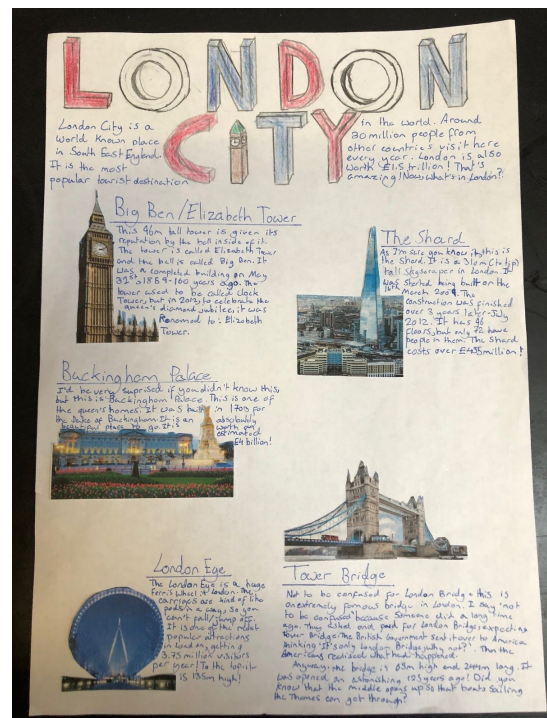 LONDON
CITY
London City is a
World known place
in South East England.
It is the most
popular tourist destination
in the world. Around
30 million people from
other countries visit here
every year. London is also
worth £1.5 trillion! That's
amazing! Now, what's in London?
Big Ben/Elizabeth Tower
This 96m tall tower is given its
reputation by the bell inside of it.
The tower is called Elizabeth Tower
and the bell is called Big Ben. It
was a completed building on May
31st 1859 - 100 years ago. The
tower used to be called Clock
Tower, but in 2012, to celebrate the
queen's diamond jubilee, it was
Renamed to: Elizabeth
Tower.
The Shard
As I'm sure you know it, this is
the Shard. It is a 310m (to tip)
tall skyscraper in London. It
was started being built on the
16th March 2009. The
construction was finished
over 3 years later - July
2012. It has 96
floors, but only 72 have
people in them. The Shard
costs over £435 million!
Buckingham Palace
I'd be very suprised if you didn't know this,
but this is Buckingham Palace. This is one of
the queen's homes. It was built in 1703 for
the Duke of Buckingham. It is an absolutely
beautiful place to go. It is worth an
estimated
£4 billion!
London Eye
The London Eye is a huge
Ferris Wheel in London. The
carriages are kind of like
pods in a way, so you
can't fall/jump off.
It is one of the most
popular attractions
in London, getting
3.75 million visitors
per year! To the top it
is 135m high!
Tower Bridge
Not to be confused for London Bridge, this is
an extremely famous bridge in London. I say 'not
to be confused' because someone did a long time
ago. They asked and paid for London Bridge, expecting
Tower Bridge. The British Government sent it over to America
thinking 'It's only London Bridge, why not?'. Then the
Americans realised what had happened.
Anyway, the bridge is 65m high and 244m long. It
was opened an astonishing 125 years ago! Did you
know that the middle opens up so that boats sailing
the Thames can get through?